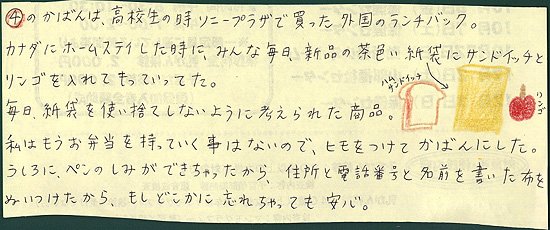 ④のかばんは、高校生の時ソニープラザで買った外国のランチバック。
カナダにホームステイした時に、みんな毎日、新品の茶色い紙袋にサンドイッチと
リンゴを入れてもっていってた。
ハムサンドイッチ
リンゴ
毎日、紙袋を使い捨てしないように考えられた商品。
私はもうお弁当を持っていく事はないので、ヒモをつけてかばんにした。
うしろに、ペンのしみができちゃったから 住所と電話番号と名前を書いた布を
ぬいつけたから、もしどこかに忘れちゃっても安心。